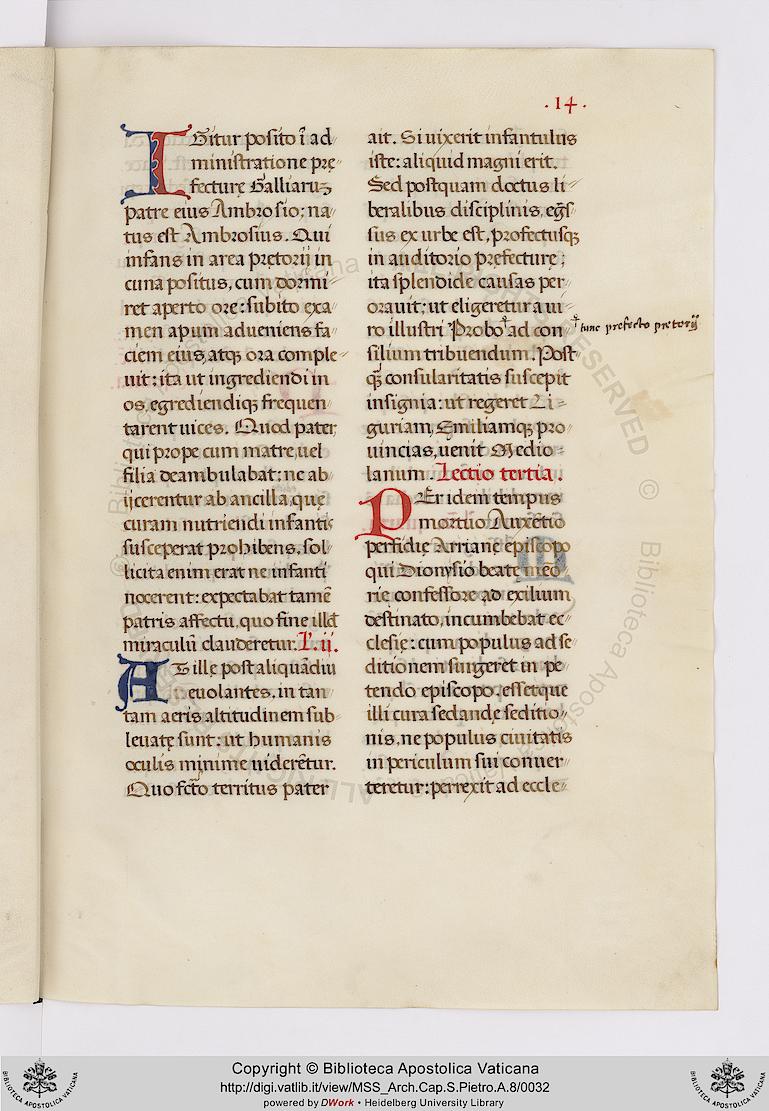 .14.
IGitur posito ī ad
ministratione prę
fecturę Galliaruȝ
patre eius Ambrosio: na
tus est Ambrosius. Qui
infans in area pretorij in
cuna positus, cum dormi
ret aperto ore: subito exa
men apum adueniens fa
ciem eius, atqȝ ora comple
uit: ita ut ingrediendi in
os, egrediendiqȝ frequen
tarent uices. Quod pater,
qui prope cum matre, uel
filia deambulabat: ne ab
ijcerentur ab ancilla, quę
curam nutriendi infantis
susceperat prohibens, sol
licita enim erat ne infanti
nocerent: expectabat tamē
patris affectu, quo fine illđ
miraculū clauderetur. L. ij.
AT ille post aliquādiu
euolantes, in tan
tam aeris altitudinem sub
leuatę sunt: ut humanis
oculis minime uiderētur.
Quo fc̄to territus pater
ait. Si uixerit infantulus
iste: aliquid magni erit.
Sed postquam doctus li
beralibus disciplinis, egs̄
sus ex urbe est, profectusqȝ
in auditorio prefecturę;
ita splendide causas per
orauit: ut eligeretur a ui
ro illustri Probo ad con
silium tribuendum. Post
q̄ȝ consularitatis suscepit
insignia: ut regeret Li
guriam, Emiliamqȝ pro
uincias, uenit Medio
lanum. Lectio tertia.
PEr idem tempus
mortuo Auxentio
perfidię Arrianę episcopo
qui Dionysio beatę meō
rię confessore ad exilium
destinato, incumbebat ec
clesię: cum populus ad se
ditionem surgeret in pe
tendo episcopo, essetque
illi cura sedandę seditio
nis, ne populus ciuitatis
in periculum sui conuer
teretur: perrexit ad eccle
tunc prefecto pretorij
© Biblioteca Apostolica Vaticana
ALL RIGHTS RESERVED
BIBLIOTECA APOSTOLICA VATICANA
Copyright © Biblioteca Apostolica Vaticana
http://digi.vatlib.it/view/MSS_Arch.Cap.S.Pietro.A.8/0032
powered by DWork • Heidelberg University Library
BIBLIOTECA APOSTOLICA VATICANA